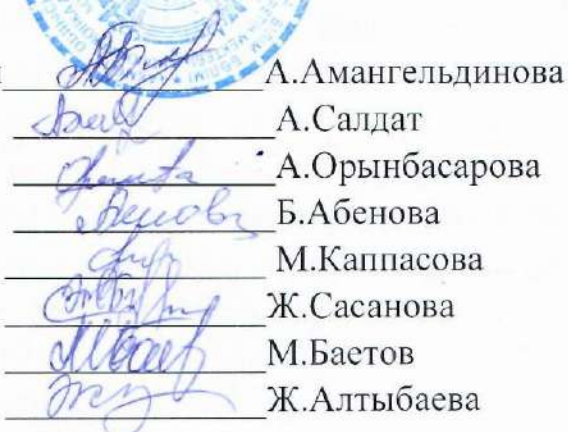 А.Амангельдинова
А.Салдат
А.Орынбасарова
Б.Абенова
М.Каппасова
Ж.Сасанова
М.Баетов
Ж.Алтыбаева